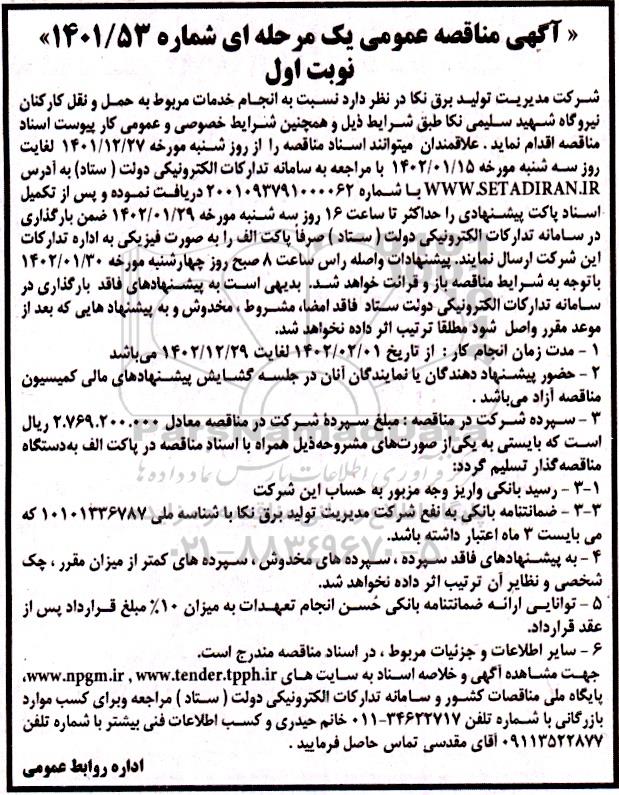 « آگهی مناقصه عمومی یک مرحله ای شماره ۱۴۰۱/۵۳»
نوبت اول
شرکت مدیریت تولید برق نکا در نظر دارد نسبت به انجام خدمات مربوط به حمل و نقل کارکنان
نیروگاه شهید سلیمی نکا طبق شرایط ذیل و همچنین شرایط خصوصی و عمومی کار پیوست اسناد
مناقصه اقدام نماید . علاقمندان میتوانند اسناد مناقصه را از روز شنبه مورخه ۱۴۰۱/۱۲/۲۷ لغایت
روز سه شنبه مورخه ۱۴۰۲/۰۱/۱۵ با مراجعه به سامانه تدارکات الکترونیکی دولت ( ستاد) به آدرس
WWW.SETADIRAN.IR با شماره ۲۰۰۱۰۹۳۷۹۱۰۰۰۰۶۲ دریافت نموده و پس از تکمیل
اسناد پاکت پیشنهادی را حداکثر تا ساعت ۱۶ روز سه شنبه مورخه ۱۴۰۲/۰۱/۲۹ ضمن بارگذاری
در سامانه تدارکات الکترونیکی دولت ( ستاد ) صرفاً پاکت الف را به صورت فیزیکی به اداره تدارکات
این شرکت ارسال نمایند. پیشنهادات واصله راس ساعت ۸ صبح روز چهارشنبه مورخه ۱۴۰۲/۰۱/۳۰
باتوجه به شرایط مناقصه باز و قرائت خواهد شد. بدیهی است به پیشنهادهای فاقد بارگذاری در
سامانه تدارکات الکترونیکی دولت ستاد فاقد امضا، مشروط ، مخدوش و به پیشنهاد هایی که بعد از
موعد مقرر واصل شود مطلقا ترتیب اثر داده نخواهد شد.
۱ - مدت زمان انجام کار : از تاریخ ۱۴۰۲/۰۲/۰۱ لغایت ۱۴۰۲/۱۲/۲۹ می‌باشد
۲ - حضور پیشنهاد دهندگان یا نمایندگان آنان در جلسه گشایش پیشنهادهای مالی کمیسیون
مناقصه آزاد می‌باشد .
۳ - سپرده شرکت در مناقصه : مبلغ سپردهٔ شرکت در مناقصه معادل ۲.۷۶۹.۲۰۰.۰۰۰ ریال
است که بایستی به یکی‌از صورت‌های مشروحه‌ذیل همراه با اسناد مناقصه در پاکت الف به‌دستگاه
مناقصه‌گذار تسلیم گردد:
۳-۱ - رسید بانکی واریز وجه مزبور به حساب این شرکت
۳-۳ - ضمانتنامه بانکی به نفع شرکت مدیریت تولید برق نکا با شناسه ملی ۱۰۱۰۱۳۳۶۷۸۷ که
می بایست ۳ ماه اعتبار داشته باشد.
۴ - به پیشنهادهای فاقد سپرده ، سپرده های مخدوش ، سپرده های کمتر از میزان مقرر ، چک
شخصی و نظایر آن ترتیب اثر داده نخواهد شد.
۵ - توانایی ارائه ضمانتنامه بانکی حُسن انجام تعهدات به میزان ۱۰٪ مبلغ قرارداد پس از
عقد قرارداد.
۶ - سایر اطلاعات و جزئیات مربوط ، در اسناد مناقصه مندرج است.
جهت مشاهده آگهی و خلاصه اسناد به سایت های www.npgm.ir , www.tender.tpph.ir،
پایگاه ملی مناقصات کشور و سامانه تدارکات الکترونیکی دولت ( ستاد ) مراجعه وبرای کسب موارد
بازرگانی با شماره تلفن ۳۴۶۲۲۷۱۷-۰۱۱ خانم حیدری و کسب اطلاعات فنی بیشتر با شماره تلفن
۰۹۱۱۳۵۲۲۸۷۷ آقای مقدسی تماس حاصل فرمایید .
اداره روابط عمومی
۰۲۱-۸۸۳۴۹۶۷۰-۵